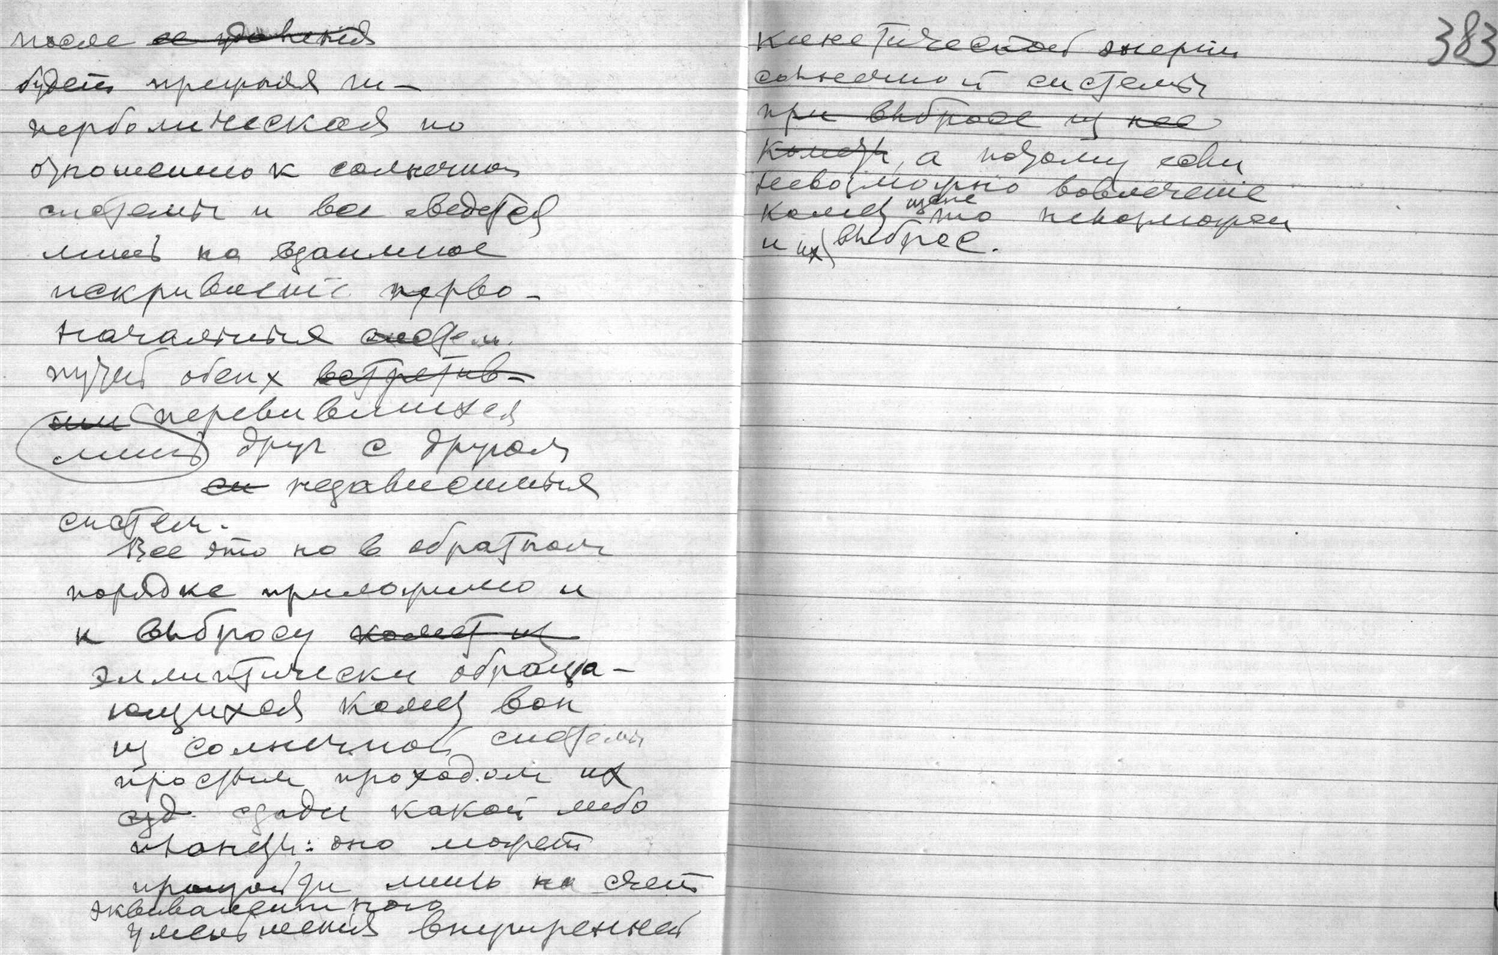 после ее удвоения
будет прежняя ги-
перболическая по
отношению к солнечной
системы и все сведется
лишь на взаимное
искривление перво-
начальныя систем.
путей обеих встретив-
ших перевившихся
лишь друг с другом
си независимыя
систем.
Все это но в обратном
порядке приложимо и
к выбросу комет из
эллиптически обраща-
ющихся комет вон
из солнечной системы
простым проходом их
сзд. сзади какой либо
планеты: оно может
произойти лишь на счет
эквивалентного
уменьшения внутренней
383
кинетической энергии
солнечной системы
при выбросе из нее
кометы, а потому если
невозможно вовлечение
комет извне то невозможен
и их выброс.